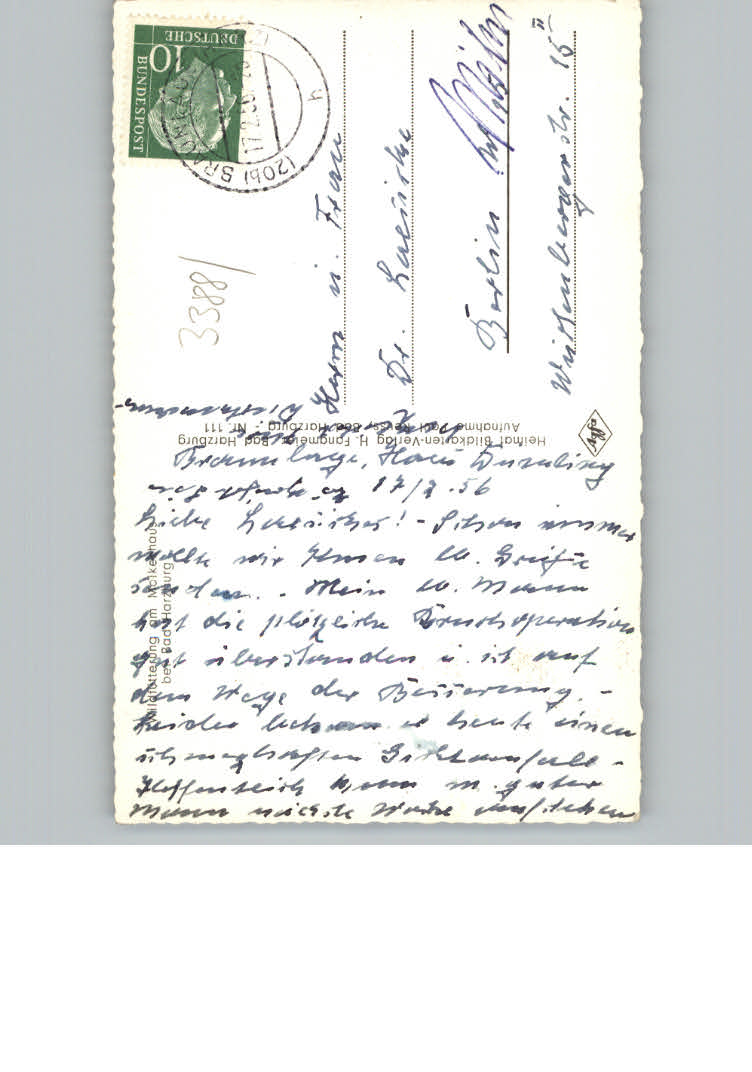 DEUTSCHE
BUNDESPOST
10
(20b) BRAUNLAGE
17.2.56
3388/
Herrn u. Frau
Dr.
Berlin
Württembergerstr. 15 II
Heimat Bildkarten-Verlag H. Fangmeier, Bad Harzburg
Aufnahme Paul Reuss, Bad Harzburg - Nr. 111
Wildfütterung am Molkenhaus
bei Bad Harzburg
Braunlage, Haus
17/2.56
Liebe ! - Schon immer
wollte wir Ihnen lb. Grüße
senden. - Mein lb. Mann
hat die plötzliche Bruchoperation
gut überstanden u. ist auf
dem Wege der Besserung. -
Leider bekam er heute einen
schmerzhaften Gichtanfall -
Hoffentlich kann m. guter
Mann nächste Woche aufstehen